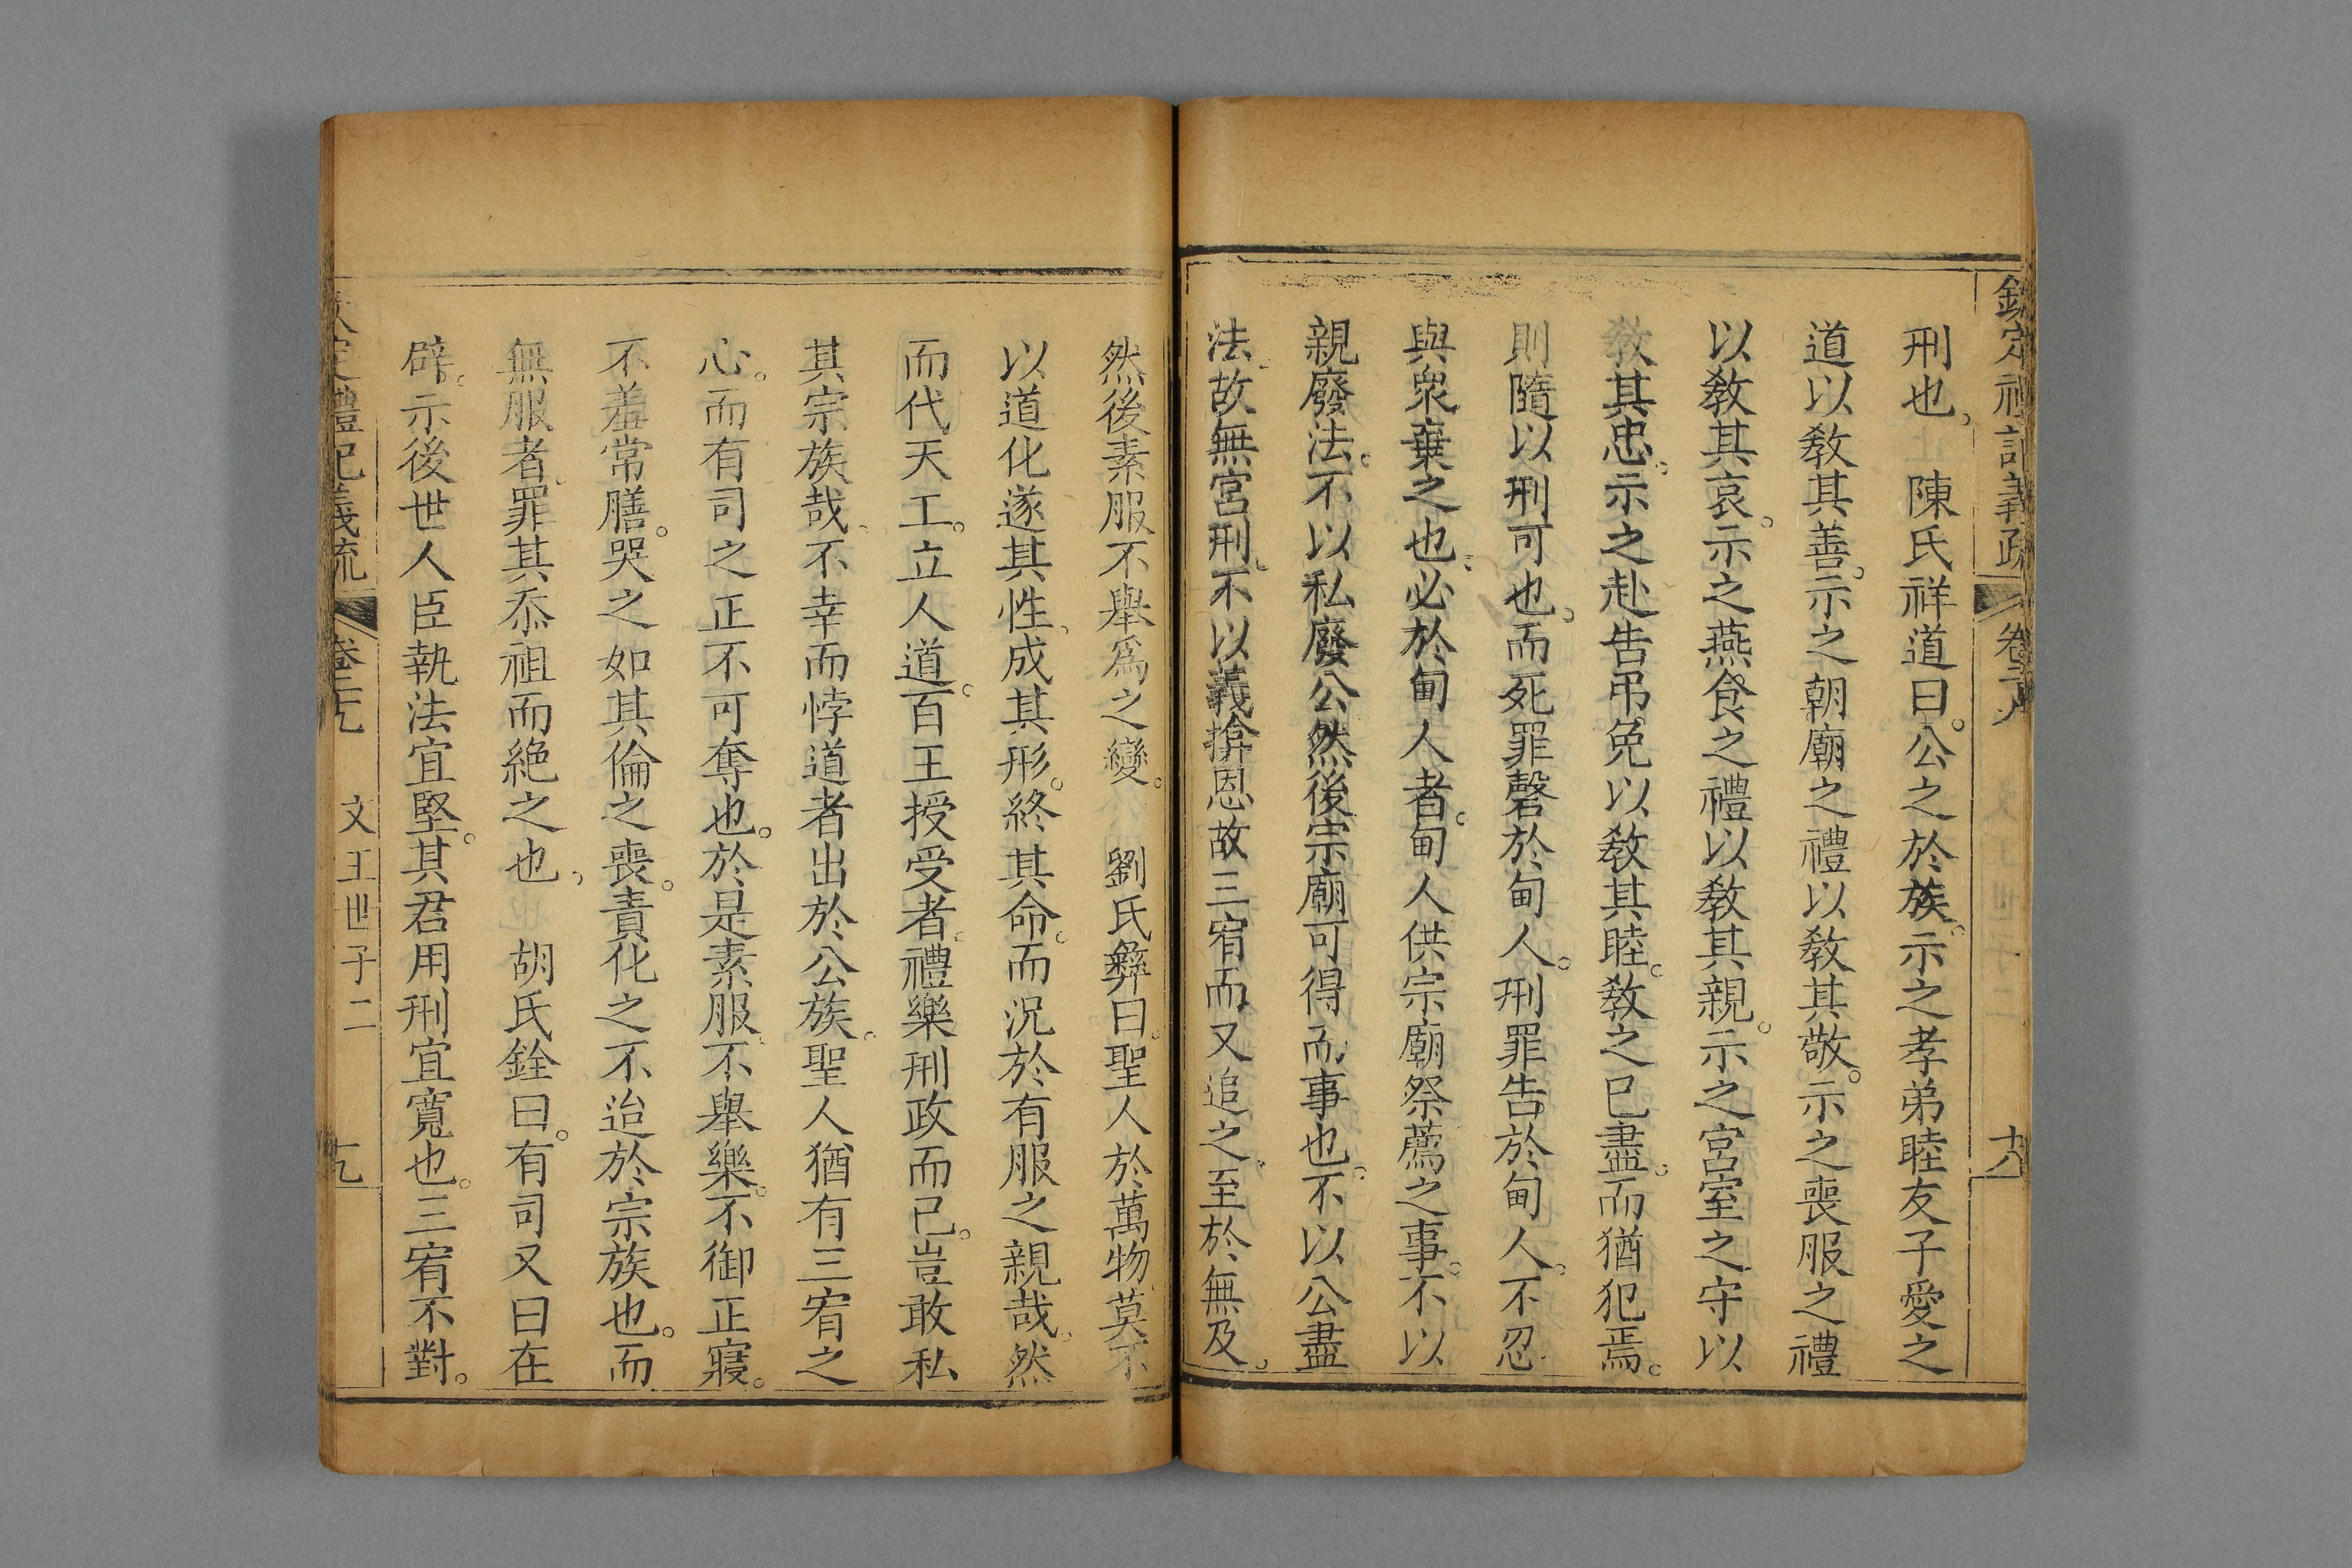 欽定禮記義疏 卷二十八 十八
刑也、陳氏祥道曰。公之於族。示之孝弟睦友子愛之
道以敎其善。示之朝廟之禮以敎其敬。示之喪服之禮
以敎其哀。示之燕食之禮以敎其親。示之宮室之守以
敎其忠。示之赴告弔免以敎其睦。敎之已盡。而猶犯焉。
則隨以刑可也。而死罪磬於甸人。刑罪告於甸人。不忍
與衆棄之也。必於甸人者。甸人供宗廟祭薦之事。不以
親廢法。不以私廢公然後宗廟可得而事也。不以公盡
法。故無宮刑。不以義揜恩故三宥而又追之。至於無及。
然後素服不舉爲之變。劉氏彝曰。聖人於萬物莫不
以道化遂其性。成其形。終其命。而況於有服之親哉。然
而代天工。立人道。百王授受者。禮樂刑政而已。豈敢私
其宗族哉。不幸而悖道者出於公族。聖人猶有三宥之
心。而有司之正不可奪也。於是素服。不舉樂。不御正寢。
不羞常膳。哭之如其倫之喪。責化之不迨於宗族也。而
無服者。罪其忝祖而絶之也、胡氏銓曰。有司又曰在
辟。示後世人臣執法宜堅。其君用刑宜寬也。三宥不對。
欽定禮記義疏 卷二十八 文王世子二 十九